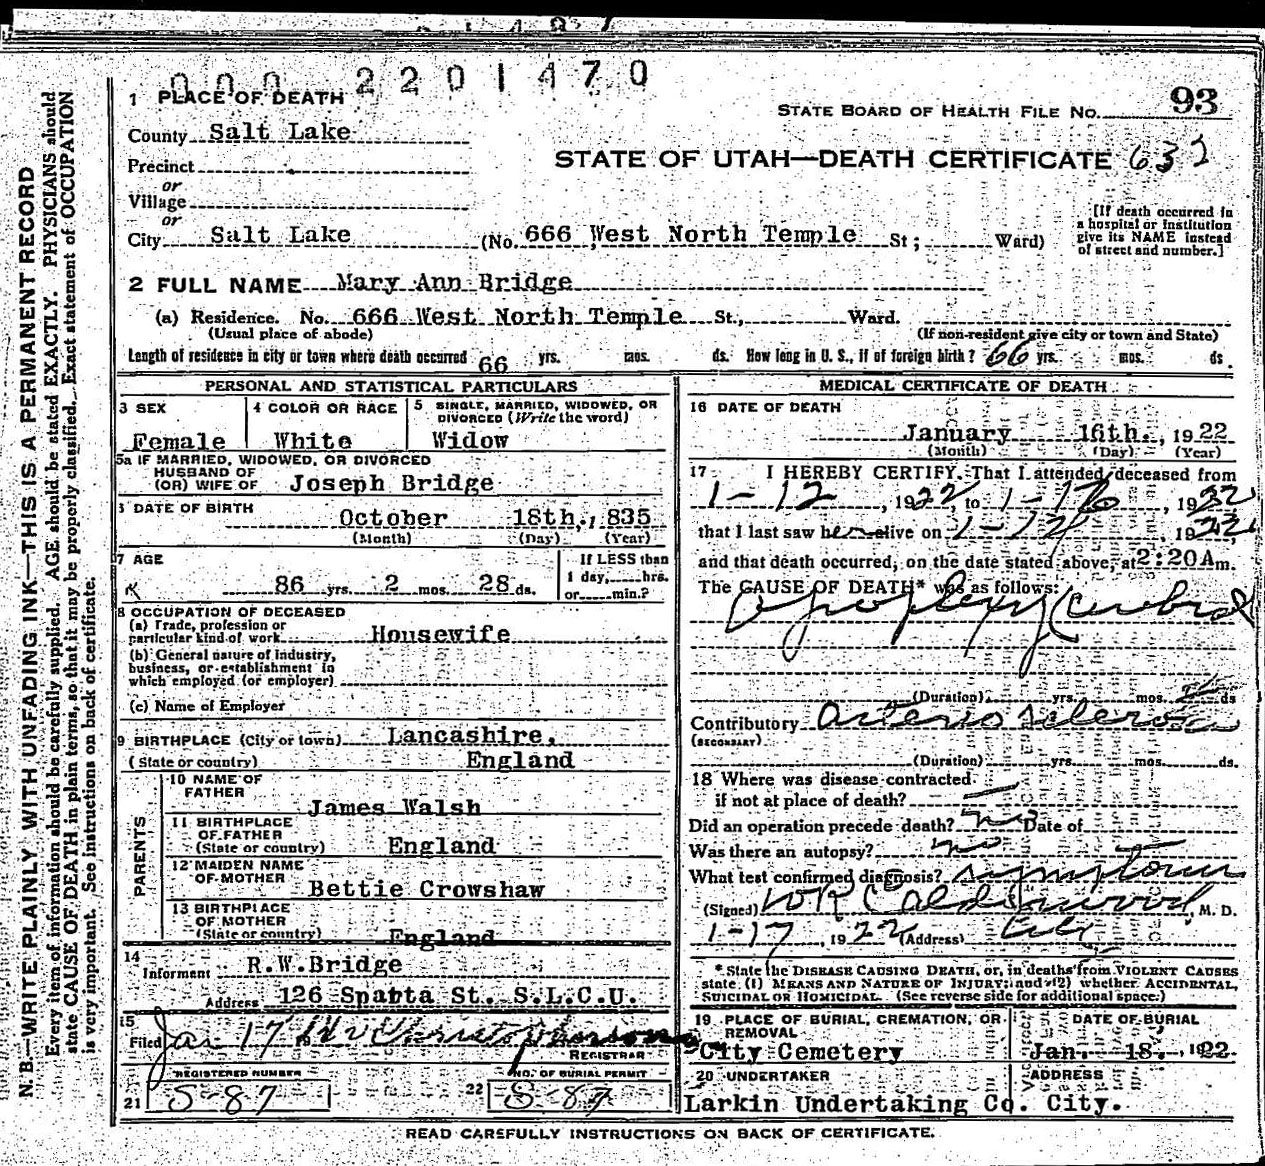 000 2201470
1 PLACE OF DEATH
STATE BOARD OF HEALTH FILE NO. 93
County Salt Lake
STATE OF UTAH—DEATH CERTIFICATE 632
Precinct
or
Village
or
City Salt Lake (No. 666 West North Temple St; Ward)
[If death occurred in
a hospital or institution
give its NAME instead
of street and number.]
2 FULL NAME Mary Ann Bridge
(a) Residence. No. 666 West North Temple St., Ward.
(Usual place of abode) (If non-resident give city or town and State)
Length of residence in city or town where death occurred 66 yrs. mos. ds. How long in U. S., if of foreign birth? 66 yrs. mos. ds
PERSONAL AND STATISTICAL PARTICULARS
3 SEX 4 COLOR OR RACE 5 SINGLE, MARRIED, WIDOWED, OR
DIVORCED (Write the word)
Female White Widow
5a IF MARRIED, WIDOWED, OR DIVORCED
HUSBAND OF
(OR) WIFE OF Joseph Bridge
DATE OF BIRTH October 18th., 835
(Month) (Day) (Year)
7 AGE If LESS than
1 day, hrs.
86 yrs. 2 mos. 28 ds. or min.?
8 OCCUPATION OF DECEASED
(a) Trade, profession or
particular kind of work Housewife
(b) General nature of industry,
business, or establishment in
which employed (or employer)
(c) Name of Employer
9 BIRTHPLACE (City or town) Lancashire,
(State or country) England
PARENTS
10 NAME OF
FATHER James Walsh
11 BIRTHPLACE
OF FATHER
(State or country) England
12 MAIDEN NAME
OF MOTHER Bettie Crowshaw
13 BIRTHPLACE
OF MOTHER
(State or country) England
14 Informent R.W.Bridge
Address 126 Spabta St. S.L.C.U.
15 Filed Jan 17
REGISTRAR
REGISTERED NUMBER NO. OF BURIAL PERMIT
21 S-87 22 S-87
MEDICAL CERTIFICATE OF DEATH
16 DATE OF DEATH
January 16th., 1922
(Month) (Day) (Year)
17 I HEREBY CERTIFY. That I attended deceased from
1-12, 1922, to 1-16, 1922
that I last saw her alive on 1-12, 1922,
and that death occurred, on the date stated above, at 2:20Am.
The CAUSE OF DEATH* was as follows:
Apoplexy Cerebral
(Duration) yrs. mos. ds
Contributory Arterio sclerosis
(SECONDARY)
(Duration) yrs. mos. ds.
18 Where was disease contracted
if not at place of death?
Did an operation precede death? no Date of
Was there an autopsy? no
What test confirmed diagnosis? symptoms
(Signed) WR Calderwood, M. D.
1-17, 1922 (Address) City
* State the DISEASE CAUSING DEATH, or, in deaths from VIOLENT CAUSES
state (1) MEANS AND NATURE OF INJURY; and (2) whether ACCIDENTAL,
SUICIDAL OR HOMICIDAL. (See reverse side for additional space.)
19 PLACE OF BURIAL, CREMATION, OR DATE OF BURIAL
REMOVAL
City Cemetery Jan. 18., 1922.
20 UNDERTAKER ADDRESS
Larkin Undertaking Co. City.
READ CAREFULLY INSTRUCTIONS ON BACK OF CERTIFICATE.
N. B.—WRITE PLAINLY WITH UNFADING INK—THIS IS A PERMANENT RECORD
Every item of information should be carefully supplied. AGE should be stated EXACTLY. PHYSICIANS should
state CAUSE OF DEATH in plain terms, so that it may be properly classified. Exact statement of OCCUPATION
is very important. See instructions on back of certificate.